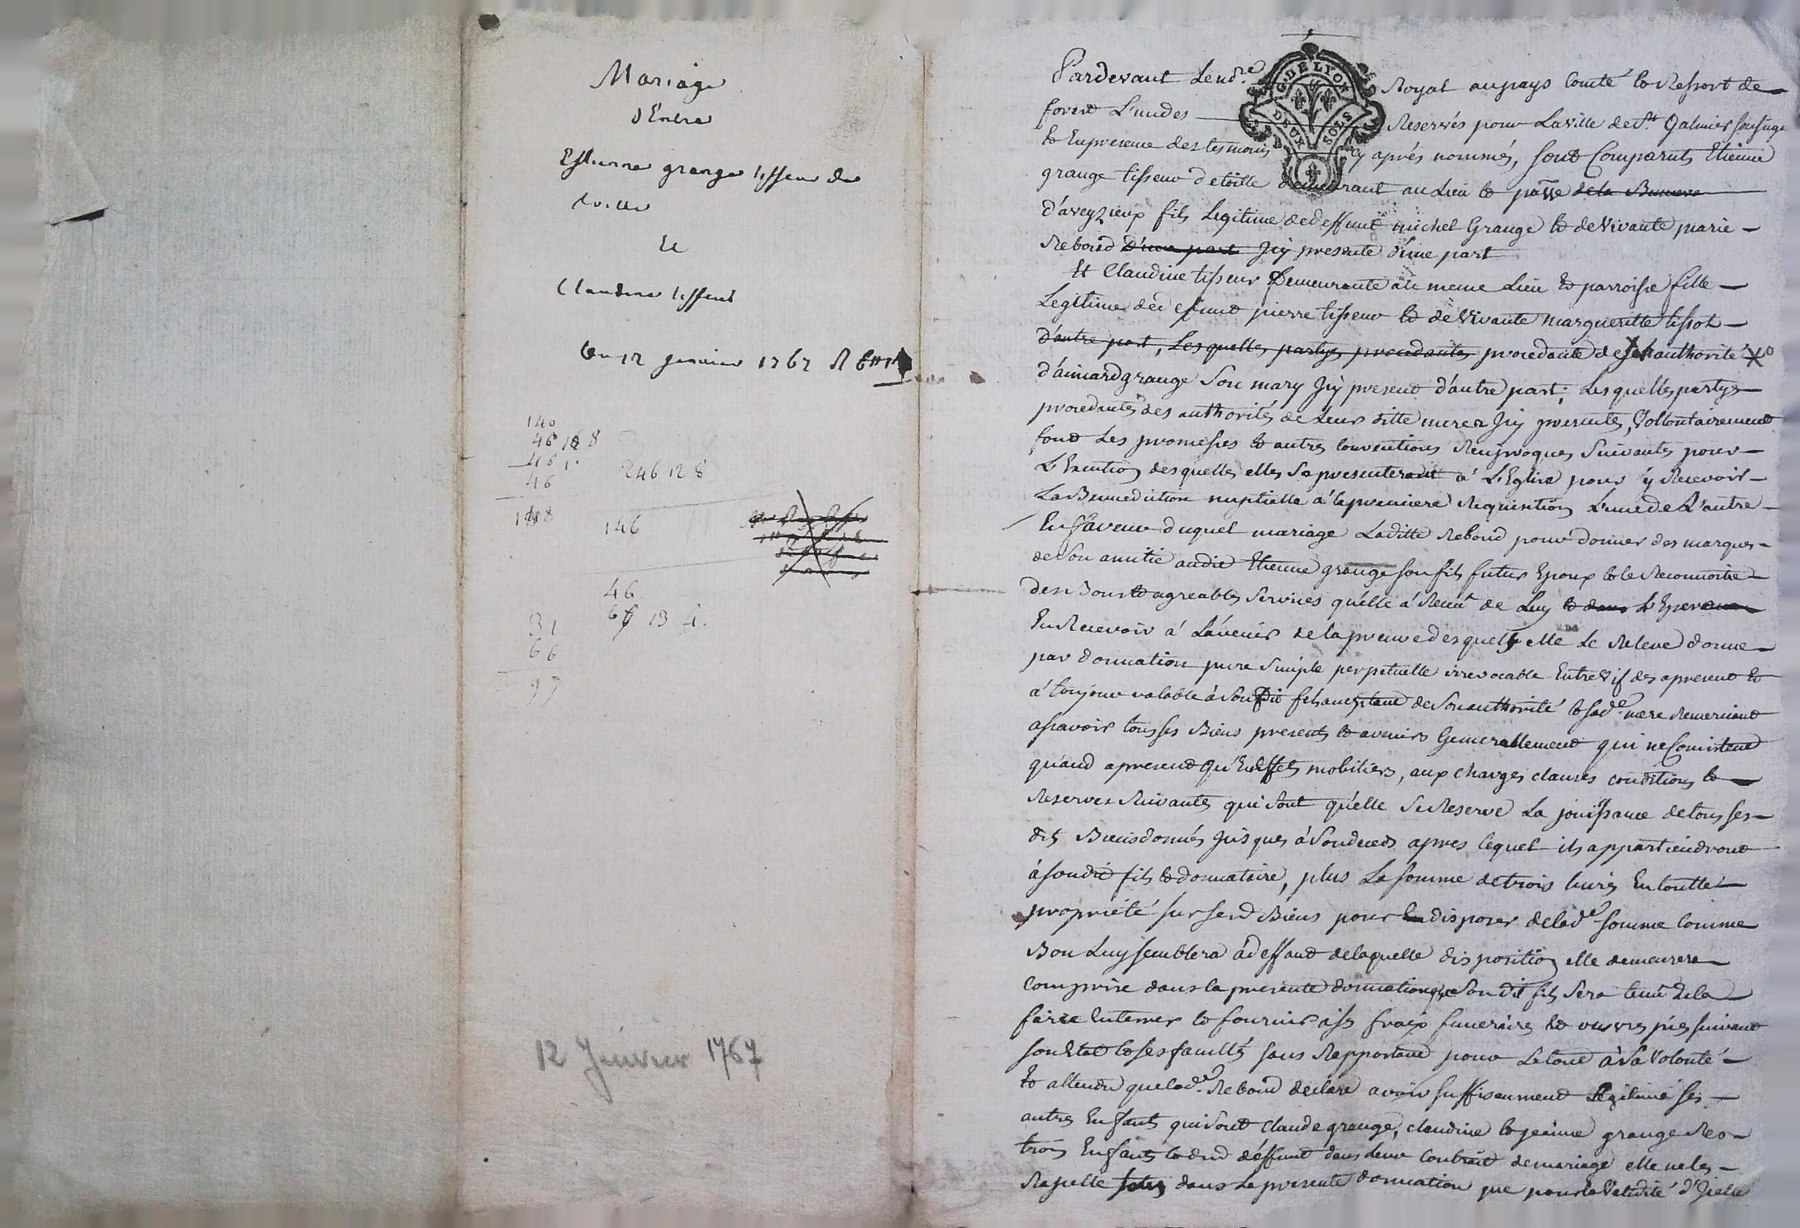 Mariage
d'Entre
Estienne grange tisseur de
toille
Et
Claudine tisseur
Du 12 janvier 1767
140
46 12 8
46 1
46
246 12 8
146
46
66 13 4.
31
66
97
12 Janvier 1767
G. DE LYON
DEUX SOLS
Pardevant Le no.re Royal au pays Comté et Ressort de
forest Reservés pour La ville de St Galmier soussigné
et En presence des temoins cy aprés nommés, sont Comparus Etienne
grange tisseur de toille demeurant au Lieu et pa.sse de la
d'aveyzieux fils Legitime de deffunt michel Grange et de vivante marie
Rebond d'une part Icy presente d'une part
Et Claudine tisseur Demeurante au meme Lieu et parroisse fille
Legitime de deffunt pierre tisseur et de vivante margueritte tissot
d'autre part, Lesquelles partyes procedantes procedante de son authorité
d'aimard grange son mary Icy present d'autre part; Lesquelles partyes
procedantes des authorités de Leurs dittes meres Icy presentes, Vollontairement
font Les promesses et autres Conventions Reciproques Suivantes pour
L'Execution desquelles elles se presenteront à L'Eglise pour y Recevoir
La Benediction nuptialle à la premiere Requisition L'une de L'autre
En faveur duquel mariage Laditte Rebond pour donner des marques
de son amitié audit Etienne grange son fils futur Epoux et le Reconnoitre
des Bons et agreables Services qu'elle a Receu de Luy et dans L'Esperance
En Recevoir à L'avenir de la preuve desquels elle Le Releve donne
par donnation pure simple perpetuelle irrevocable Entre vif des apresent et
à toujours valable à son dit fils acceptant de son authorité et sad.e mere Remerciant
assavoir tous ses Biens presents et avenirs Generallement qui ne Consistent
quand apresent qu'En Effets mobiliers, aux charges clauses conditions et
Reserves suivantes qui sont qu'elle se Reserve La jouissance de tous ses
dits Biens donnés jusques à son deceds apres lequel ils appartiendront
à son dit fils et donnataire, plus La somme de trois livres En toutte
propriété sur sesd Biens pour En disposer de lad.e somme Comme
Bon Luy semblera à deffaut de laquelle disposition elle demeurera
comprise dans la presente donnation, que son dit fils sera tenu de la
faire Enterrer et fournir à ses fraix funeraires et œuvres pies suivant
son Etat et ses facultés sans Rapportant pour Le tout à sa volonté
Et attendu que lad.e Rebond declare avoir suffisamment Legitimé ses
autres Enfants qui sont claude grange, claudine et jeanne grange ses
trois Enfants et dud deffunt dans Leur Contrait de mariage elle ne les
Rapelle dans La presente donnation que pour la Validité d'Icelle